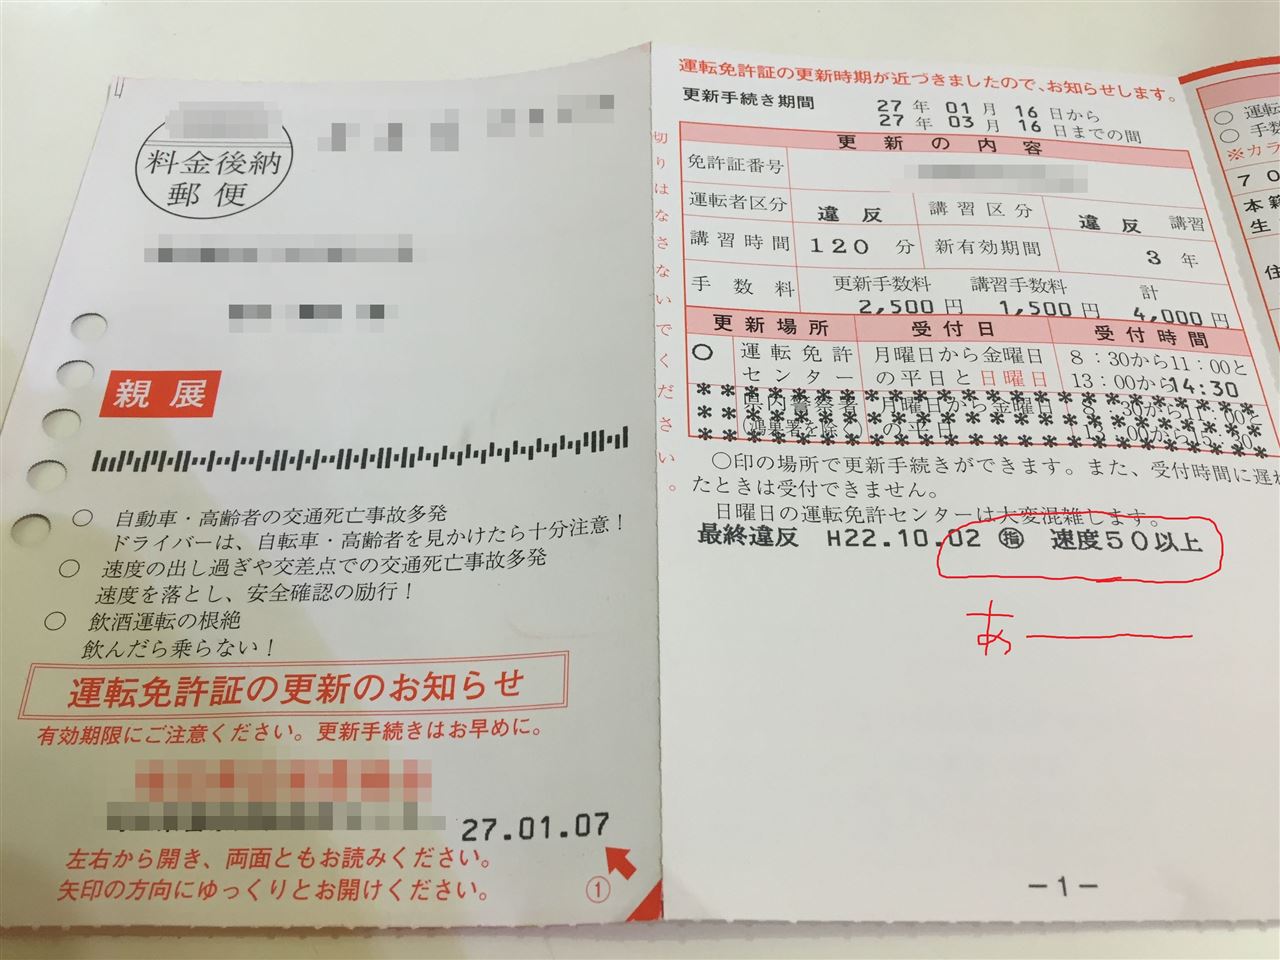 料金後納
郵便
親展
○ 自動車・高齢者の交通死亡事故多発
ドライバーは、自転車・高齢者を見かけたら十分注意！
○ 速度の出し過ぎや交差点での交通死亡事故多発
速度を落とし、安全確認の励行！
○ 飲酒運転の根絶
飲んだら乗らない！
運転免許証の更新のお知らせ
有効期限にご注意ください。更新手続きはお早めに。
27.01.07
左右から開き、両面ともお読みください。
矢印の方向にゆっくりとお開けください。
①
切りはなさないでください。
運転免許証の更新時期が近づきましたので、お知らせします。
更新手続き期間 27年01月16日から
27年03月16日までの間
更新の内容
免許証番号
運転者区分 違反 講習区分 違反 講習
講習時間 120分 新有効期間 3年
手数料 更新手数料 講習手数料 計
2,500円 1,500円 4,000円
更新場所 受付日 受付時間
○ 運転免許 月曜日から金曜日 8：30から11：00と
センター の平日と日曜日 13：00から14:30
県内警察署 月曜日から金曜日
(鴻巣署を除く) の平日
○印の場所で更新手続きができます。また、受付時間に遅れ
たときは受付できません。
日曜日の運転免許センターは大変混雑します。
最終違反 H22.10.02 ㊟ 速度50以上
あ――
－1－
○ 運転
○ 手数
※カラ
70
本籍
生
住